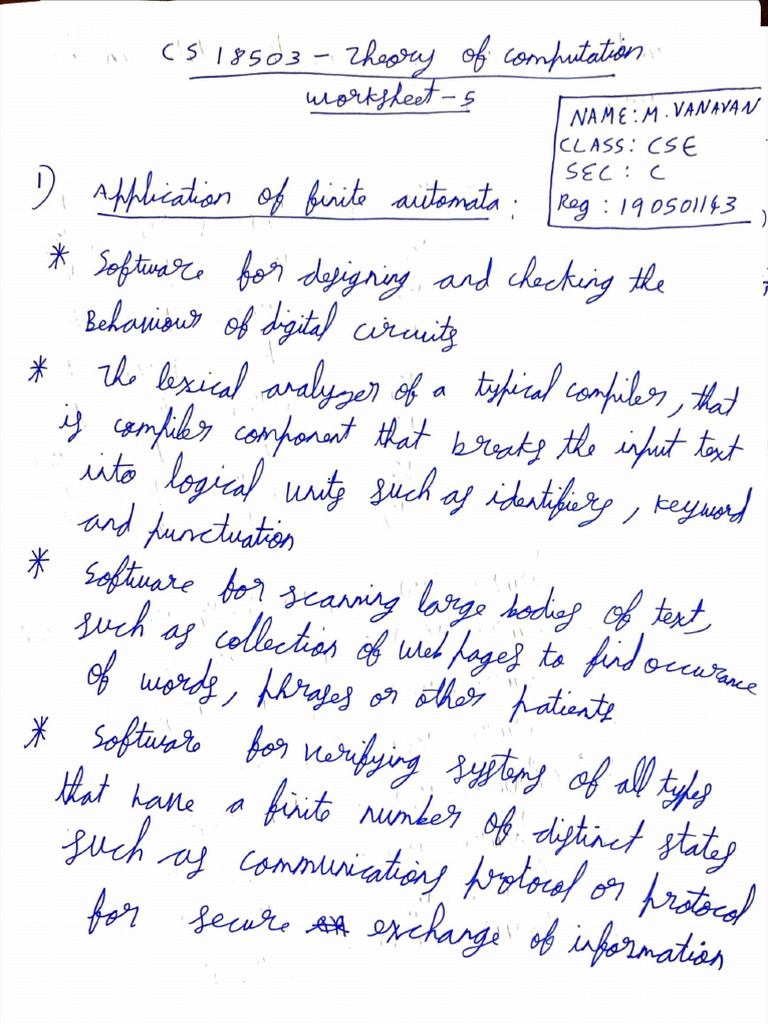 CS18503 - Theory of computation
Worksheet - 5
NAME: M. VANAVAN
CLASS: CSE
SEC : C
Reg : 190501143
1) Application of finite automata:
* Software for designing and checking the
Behaviour of digital circuits
* The lexical analyzer of a typical compiler, that
is compiler component that breaks the input text
into logical units such as identifiers, keyword
and punctuation
* Software for scanning large bodies of text,
such as collection of web pages to find occurance
of words, phrases or other patients
* Software for verifying systems of all types
that have a finite number of distinct states
such as communications protocol or protocol
for secure exchange of information